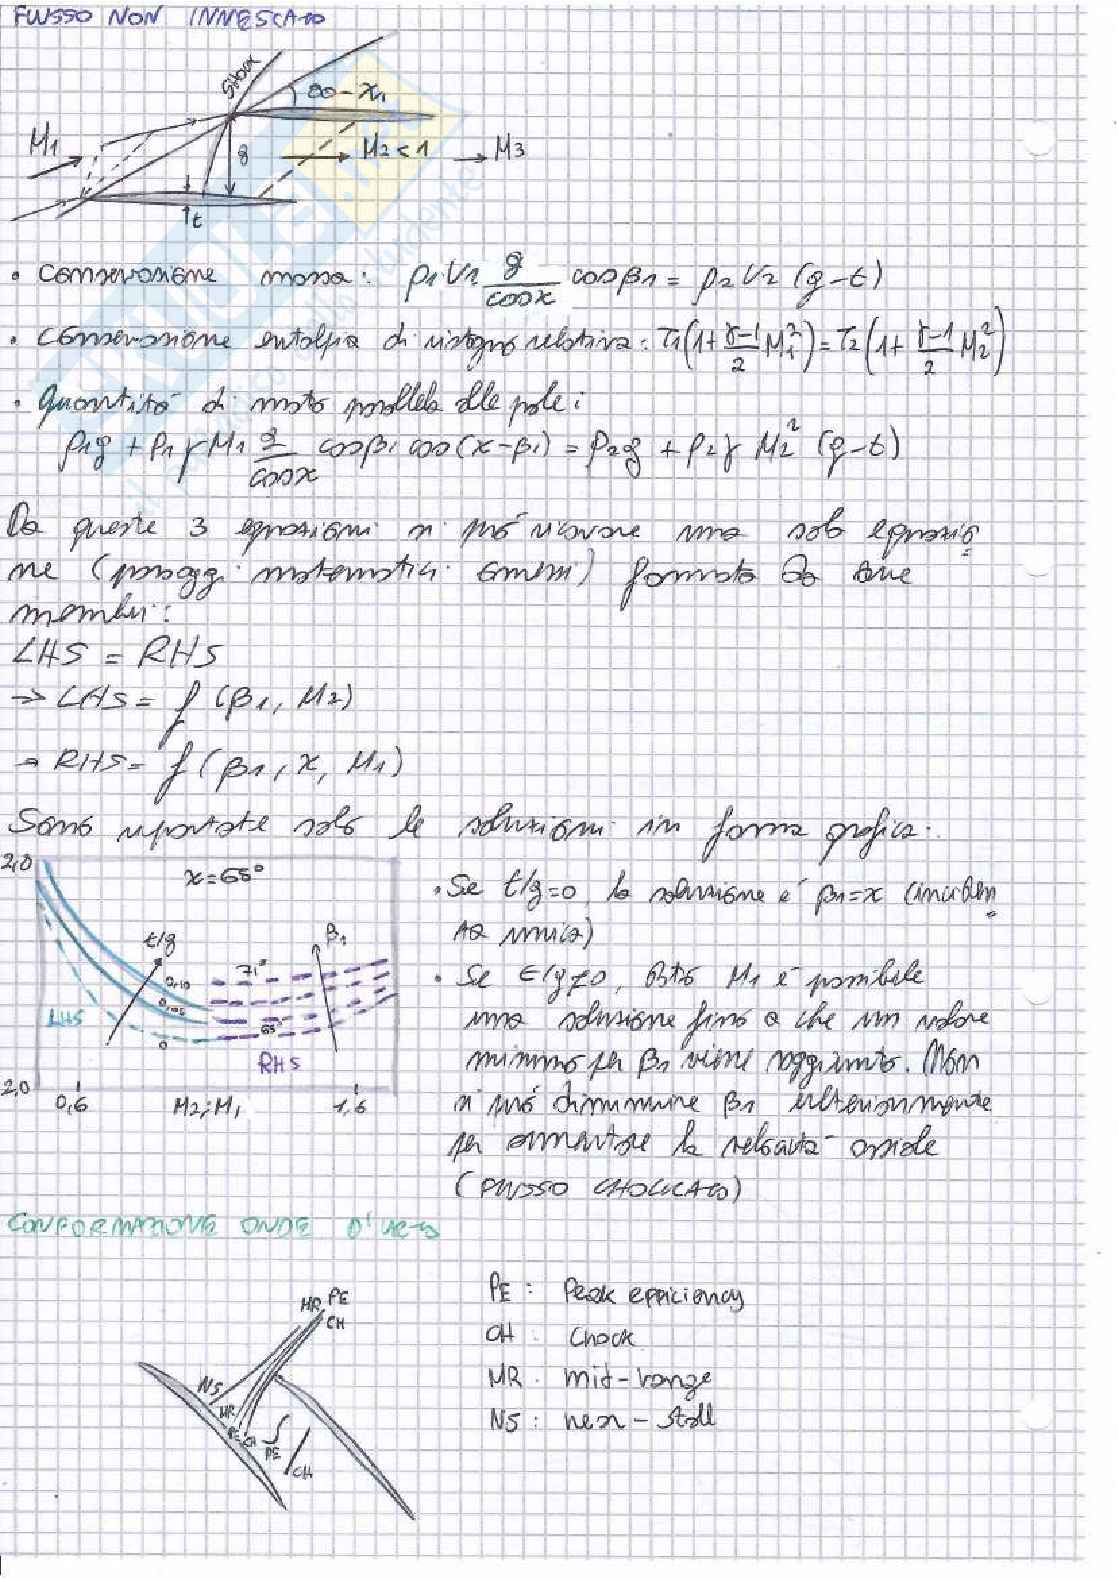 FLUSSO NON INNESCATO
SHOCK
90-χ1
M1
g
M2<1
M3
t
• conservazione massa: ρ1V1 g/cosχ cosβ1 = ρ2V2 (g-t)
• conservazione entalpia di ristagno relativa: T1(1+ γ-1/2 M1²) = T2(1+ γ-1/2 M2²)
• Quantità di moto parallela alle pale:
p1g + p1γM1 g/cosχ cosβ1 cos(χ-β1) = p2g + p2γ M2² (g-t)
Da queste 3 equazioni si può ricavare una sola equazio
ne (passaggi matematici omessi) formata da due
membri:
LHS = RHS
→ LHS = f (β1, M2)
→ RHS = f (β1, χ, M1)
Sono riportate solo le soluzioni in forma grafica:
2,0
χ=65°
t/g
β1
0,10
71°
0,05
65°
0
LHS
RHS
2,0
0,6
M2; M1
1,6
• Se t/g=0, la soluzione è β1=χ (inciden
za unica)
• Se t/g≠0, dato M1 è possibile
una soluzione fino a che un valore
minimo per β1 viene raggiunto. Non
si può diminuire β1 ulteriormente
per aumentare la velocità assiale
(FLUSSO CHOCCATO)
CONFORMAZIONE ONDE D'URTO
MR PE
CH
NS
MR
PE
CH
PE
CH
PE : Peak efficiency
CH : Chock
MR : mid-range
NS : near-stall